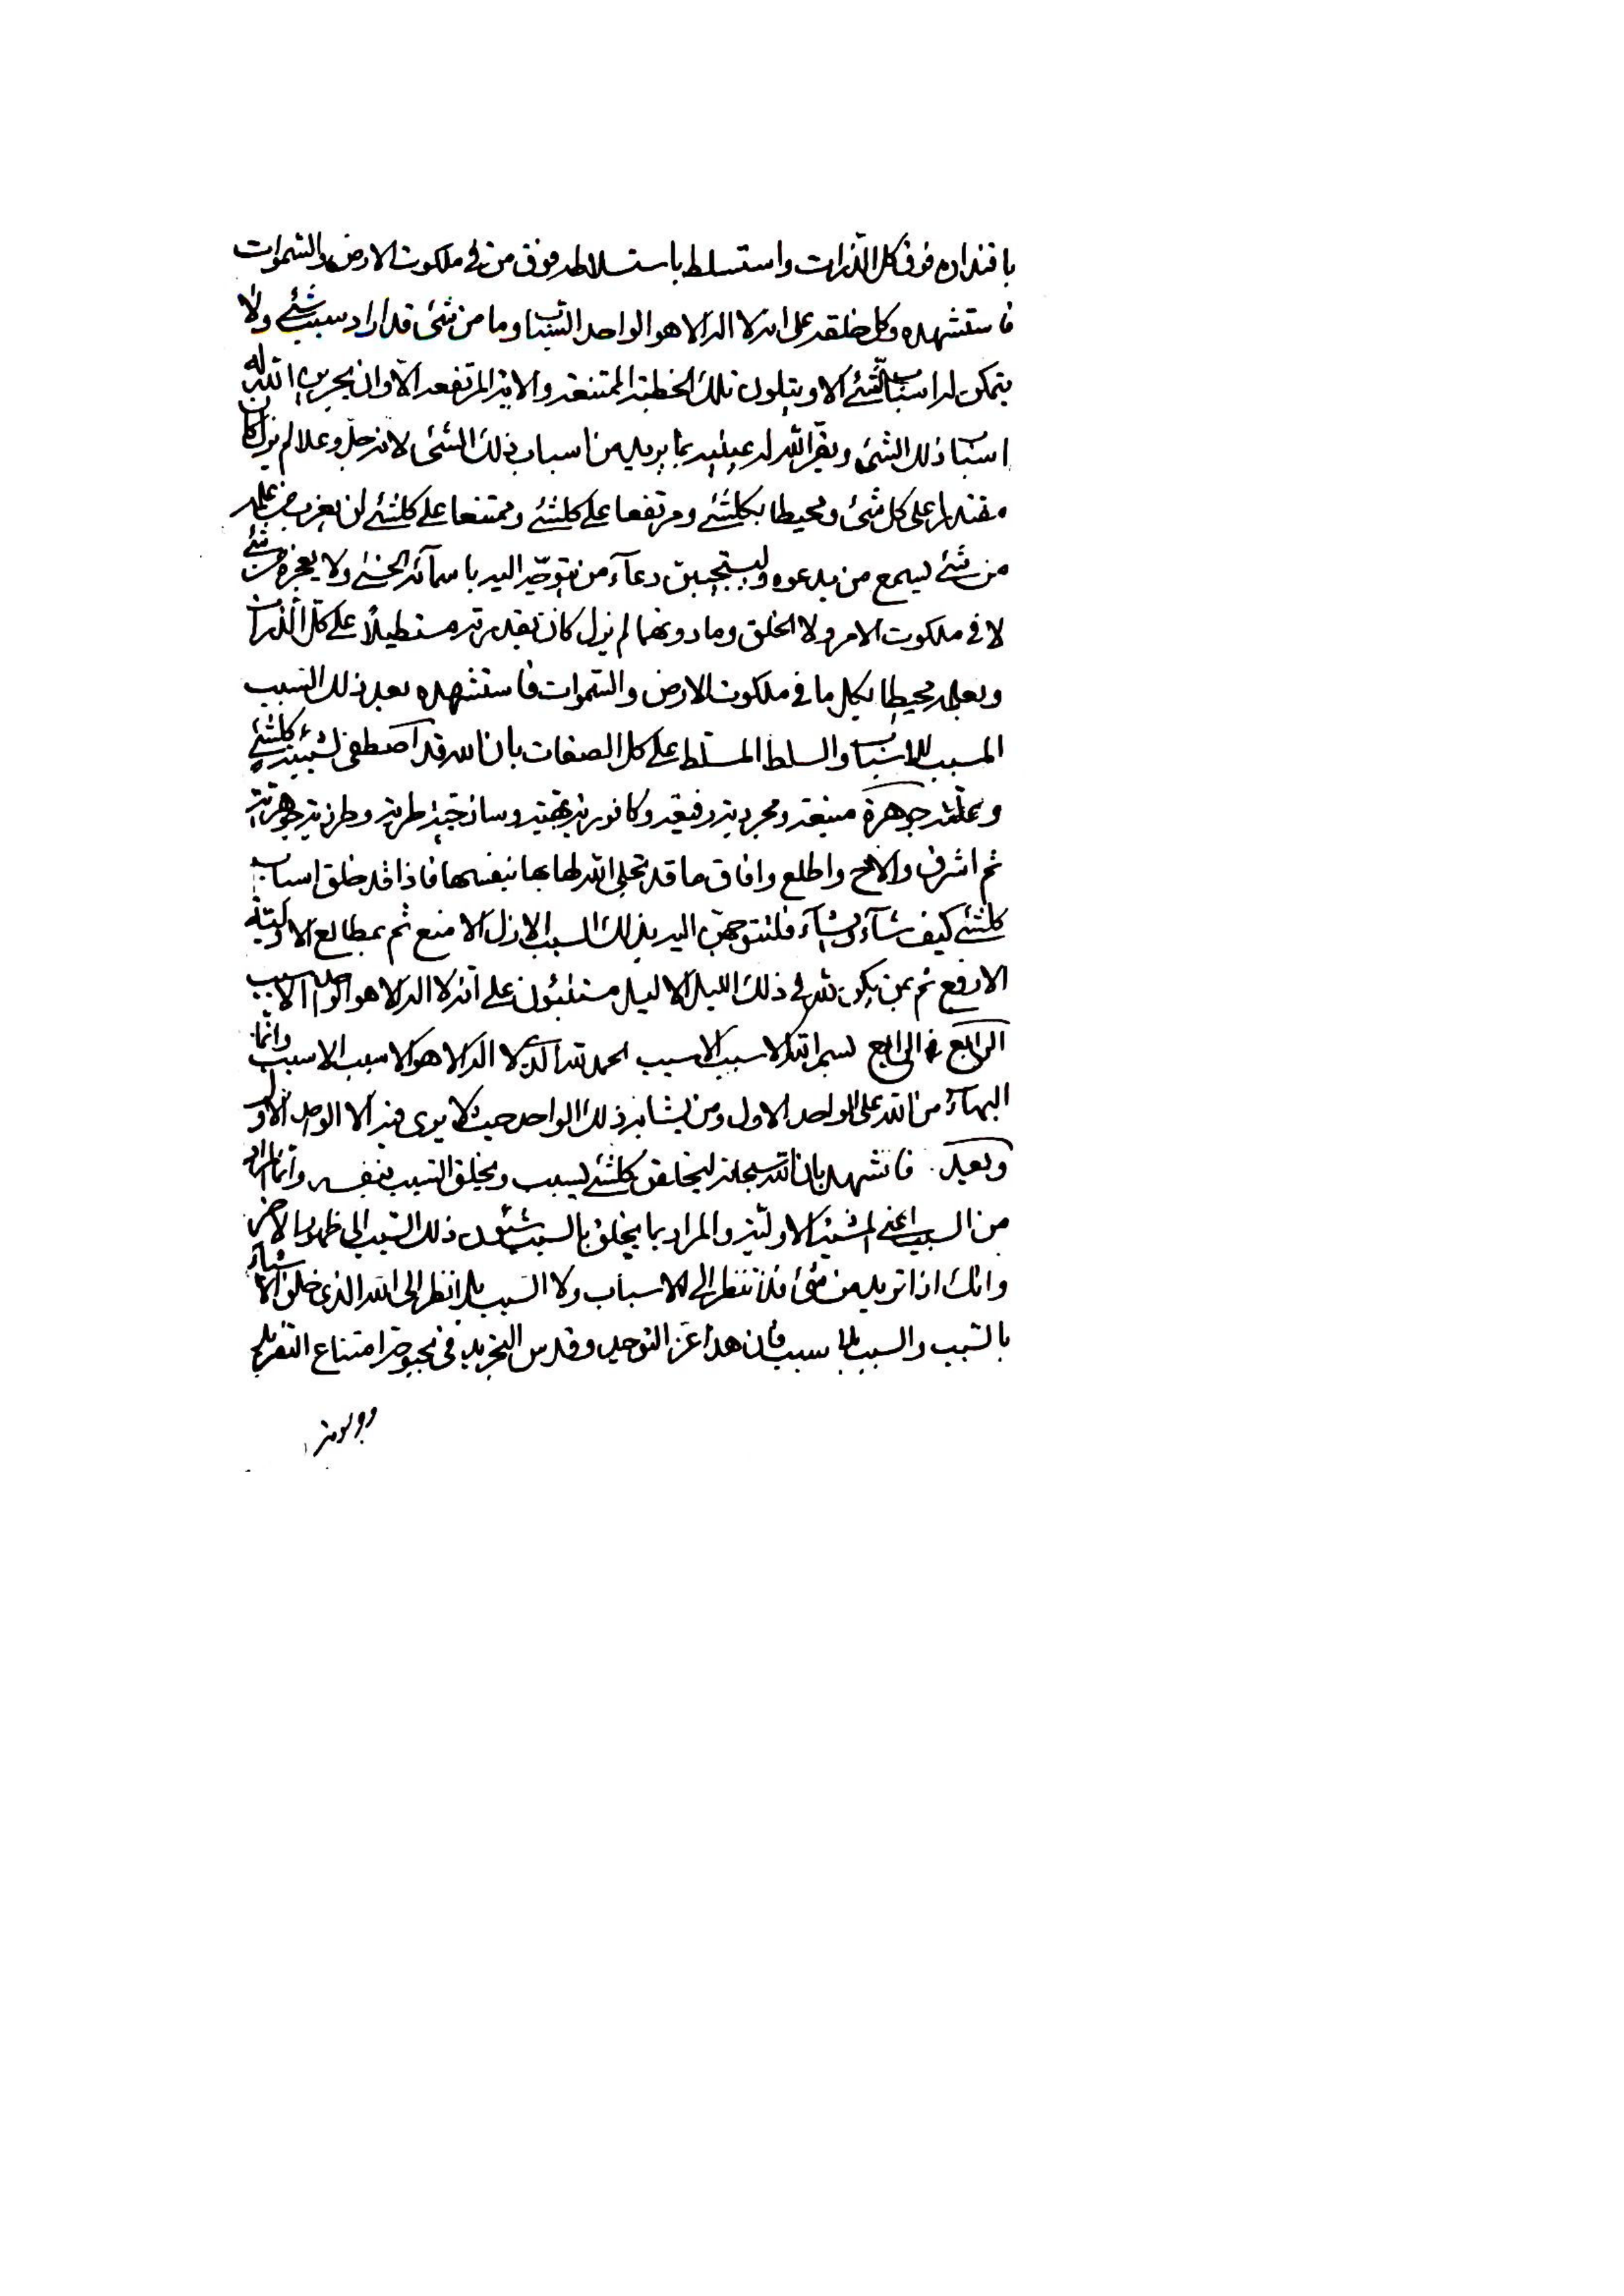 باقتداره فوق كل الذرات واستسلط باستسلاطه فوق من في ملكوت الارض والسموات
فاستشهده وكل خلقه على انه لا اله الا هو الواحد السباب وما من شئ قد اراد سبب شئ ولا
يتمكن له اسباب الشئ الا ويتلون تلك الخطبة الممتنعة والاية المرتفعة الا وان يجرين الله له
اسباب ذلك الشئ ويقر الله له عينيه بما يريد من اسباب ذلك الشئ لانه جل وعلا لم يزل كان
مقتدرا على كل شئ ومحيطا بكلشئ ومرتفعا على كلشئ وممتنعا على كلشئ لن يعزب من علمه
من شئ ليسمع من يدعوه وليستجيبن دعآء من يتوجه اليه باسمآئه الحسنى ولا يعجزه من شئ
لا في ملكوت الامر ولا الخلق وما دونهما لم يزل كان بقدرته مستطيلاً على كل الذرات
وبعلمه محيطا بكل ما في ملكوت الارض والسموات فاستشهده بعد ذلك السبب
المسبب للاسباب والسلط المسلط على كل الصفات بان الله قد اصطفى لمشيته كلشئ
جوهرة منيعة ومجردية رفيعة وكافورية بهية وساذجية طرية وطرزية جوهرية
ثم اشرق والاح واطلع وافاق ما قد تجلى الله لها بها بنفسها فاذا قد خلق اسباب
كلشئ كيف شآء ويشآء فلتتوجهن اليه بذلك السبب الازل الامنع ثم بمطالع الاولية
الارفع ثم بمن يكون لله في ذلك الليل الاليل مستنبئون على انه لا اله الا هو الواحد الاسبب
الرابع في الرابع بسم الله الاسبب الاسبب الحمد لله الذي لا اله الا هو الاسبب الاسبب وانما
البهآء من الله على الواحد الاول ومن يشابه ذلك الواحد حيث لا يرى فيه الا الواحد الاول
وبعد فاشهد بان الله سبحانه ليخلقن كلشئ بسبب ويخلق السبب بنفسه وانما المراد
من السبب اعني المشية الاولية والمراد بما يخلق بالسبب شئون ذلك السبب الى ظهورها الاخر
وانك اذا تريد من شئ فلا تنظر الى الاسباب ولا السبب بل انظر الى الله الذي خلق الاشيآء
بالسبب والسبب بلا سبب فان هذا عز التوحيد وقدس التجريد في بحبوحة امتناع التفريد